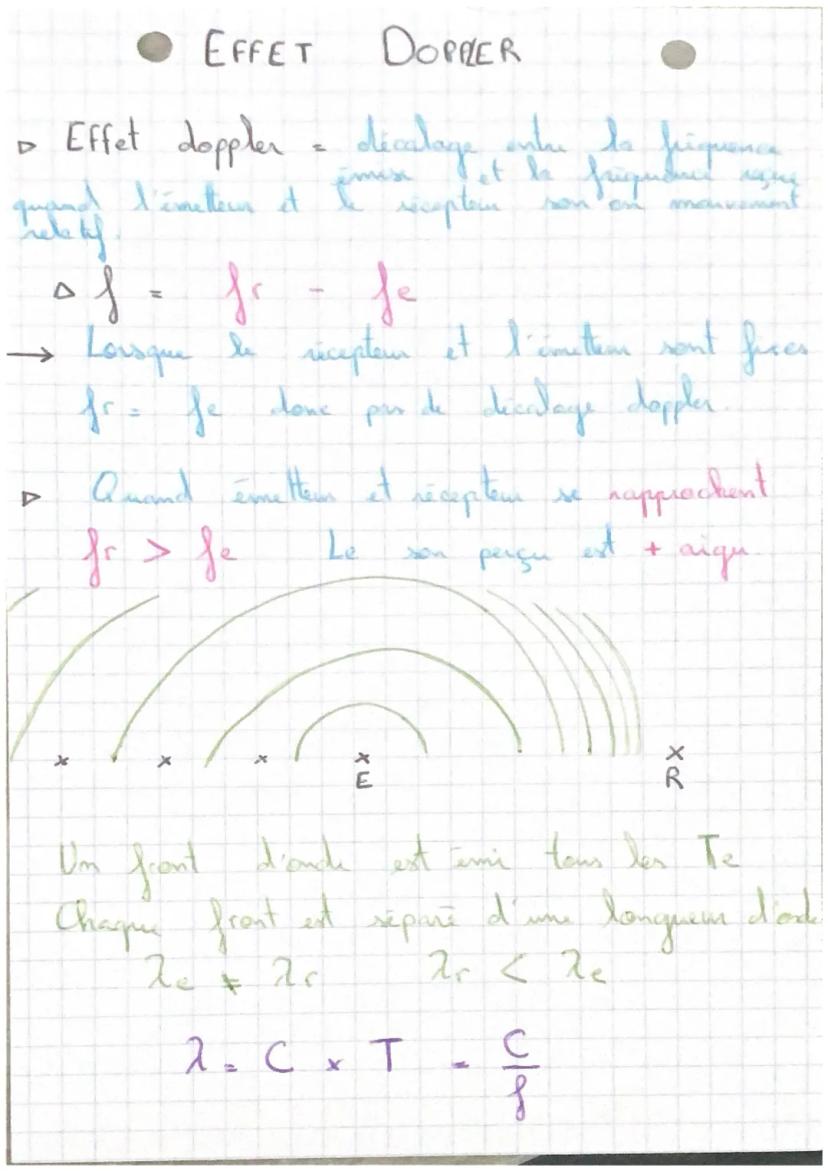 EFFET DOPPLER
▷ Effet doppler = décalage entre la fréquence
émise et la fréquence reçue
quand l'émetteur et le récepteur son en mouvement
relatif.
Δ f = fr - fe
→ Lorsque le récepteur et l'émetteur sont fixes
fr = fe donc pas de décalage doppler.
▷ Quand émetteur et récepteur se rapprochent
fr > fe Le son perçu est + aigu.
x x x x x
E R
Un front d'onde est émi tous les Te
Chaque front est séparé d'une longueur d'onde
λe ≠ λr λr < λe
λ = C x T = C/f